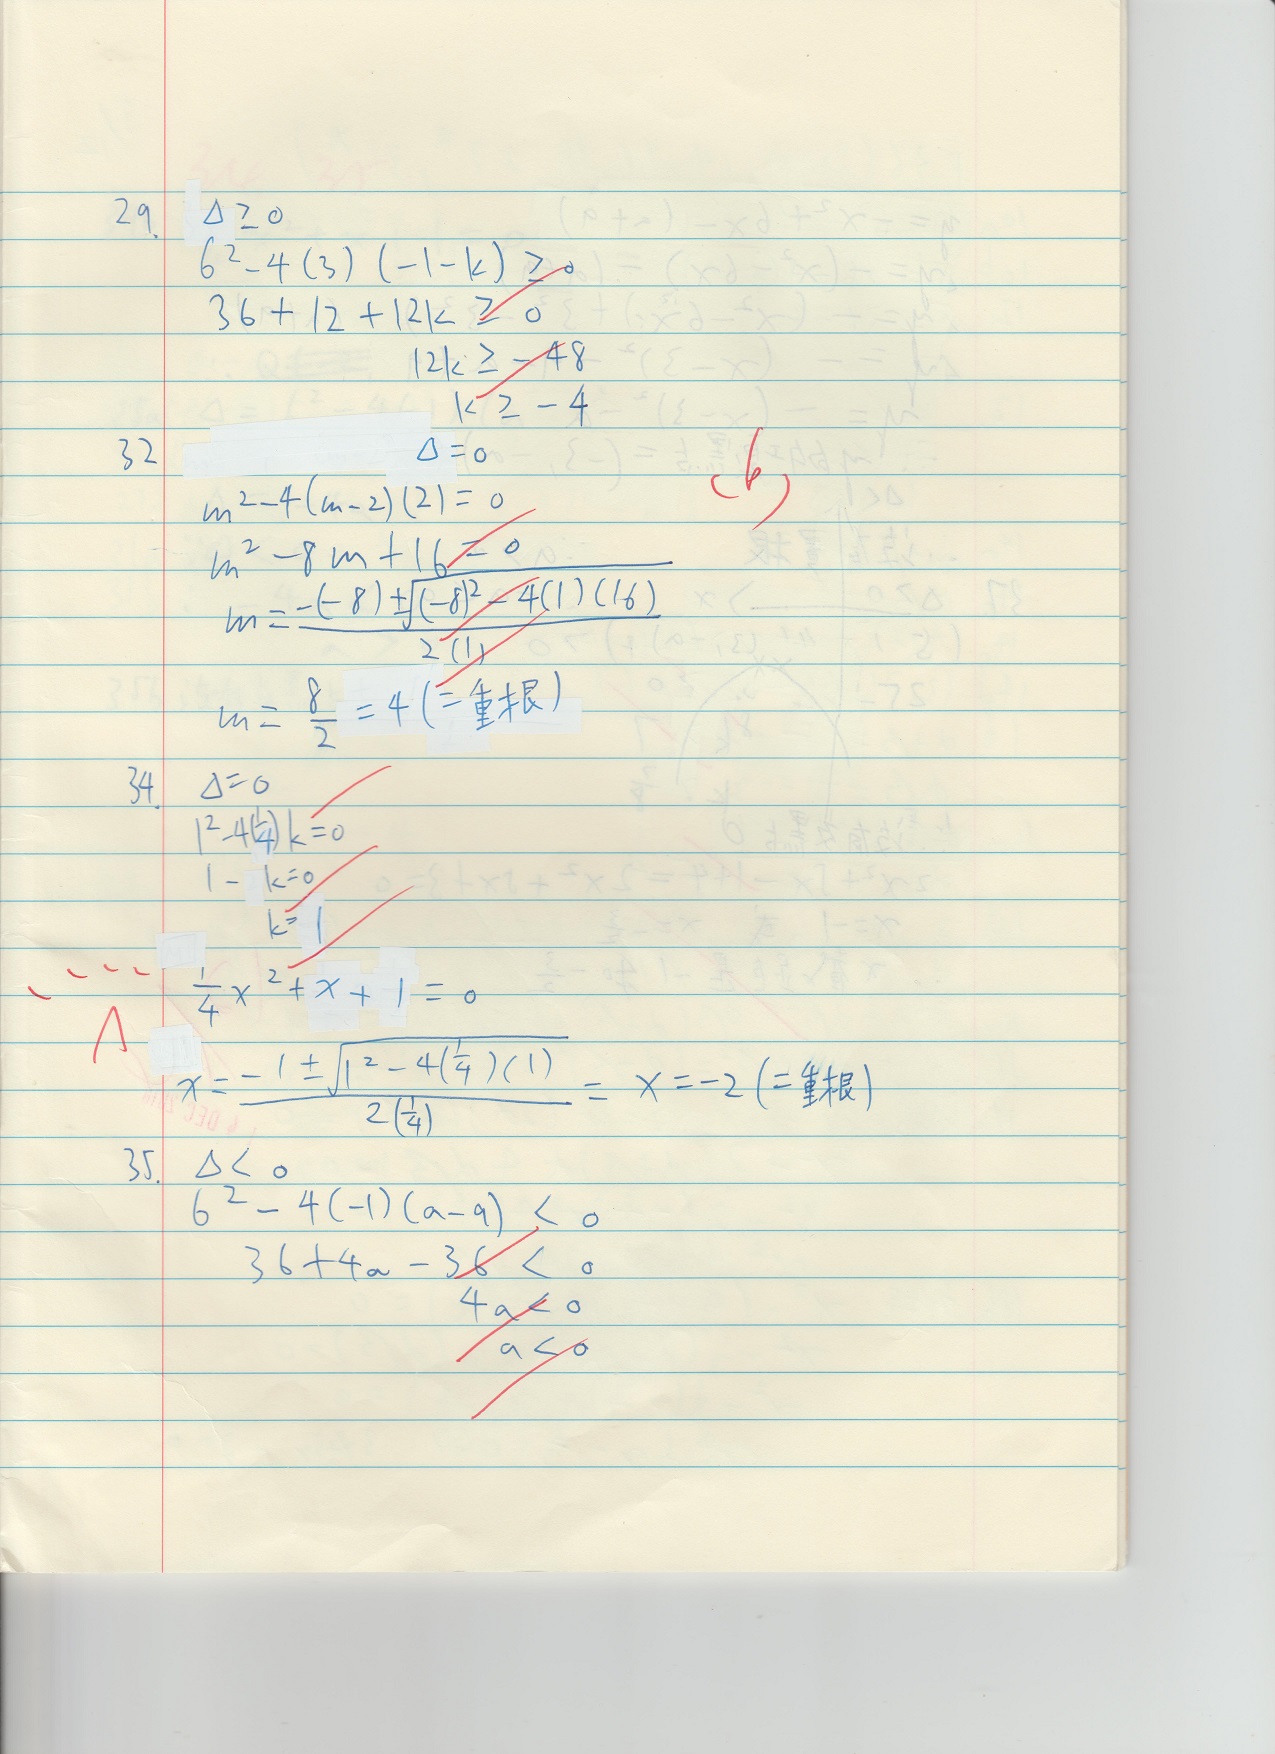 29. Δ ≥ 0
6² - 4(3)(-1-k) ≥ 0
36 + 12 + 12k ≥ 0
12k ≥ -48
k ≥ -4
32 Δ = 0
(b)
m² - 4(m-2)(2) = 0
m² - 8m + 16 = 0
m = \frac{-(-8) ± √((-8)² - 4(1)(16))}{2(1)}
m = \frac{8}{2} = 4 (二重根)
34. Δ = 0
1² - 4(\frac{1}{4})k = 0
1 - k = 0
k = 1
\frac{1}{4}x² + x + 1 = 0
x = \frac{-1 ± √(1² - 4(\frac{1}{4})(1))}{2(\frac{1}{4})} = x = -2 (二重根)
35. Δ < 0
6² - 4(-1)(a-9) < 0
36 + 4a - 36 < 0
4a < 0
a < 0